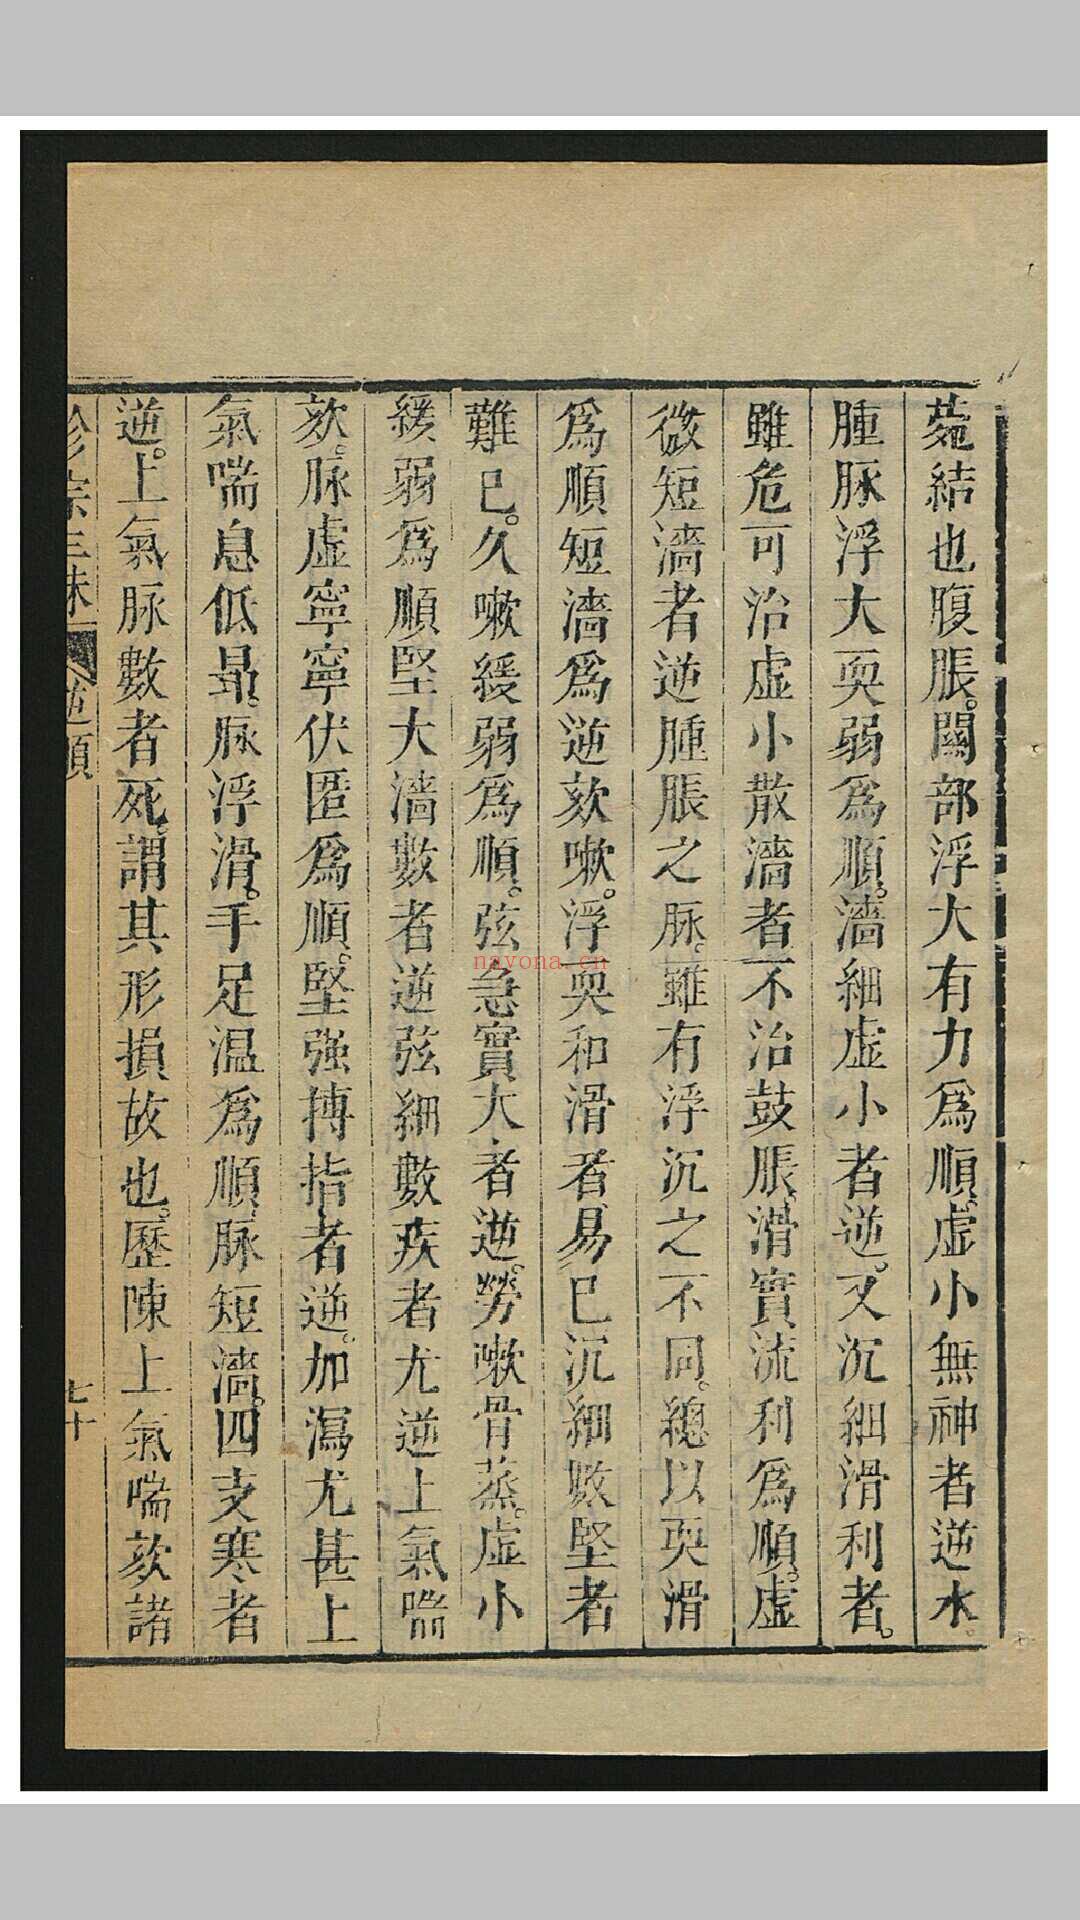 菀結也腹脹。關部浮大有力爲順。虛小無神者逆水。
腫脉浮大耎弱爲順。濇細虛小者逆。又沉細滑利者。
雖危可治虛小散濇者不治鼓脹。滑實流利爲順。虛
微短濇者逆腫脹之脉。雖有浮沉之不同。總以耎滑
爲順短濇爲逆欬嗽。浮耎和滑者易已沉細數堅者
難已。久嗽緩弱爲順。弦急實大者逆。勞嗽骨蒸。虛小
緩弱爲順堅大濇數者逆弦細數疾者尤逆上氣喘
欬。脉虛寧寧伏匿爲順。堅强搏指者逆。加瀉尤甚上
氣喘息低昻。脉浮滑。手足温爲順。脉短濇。四支寒者
逆。上氣脉數者死。謂其形損故也。歷陳上氣喘欬諸
診宗三昧 逆順 七十
nayona.cn